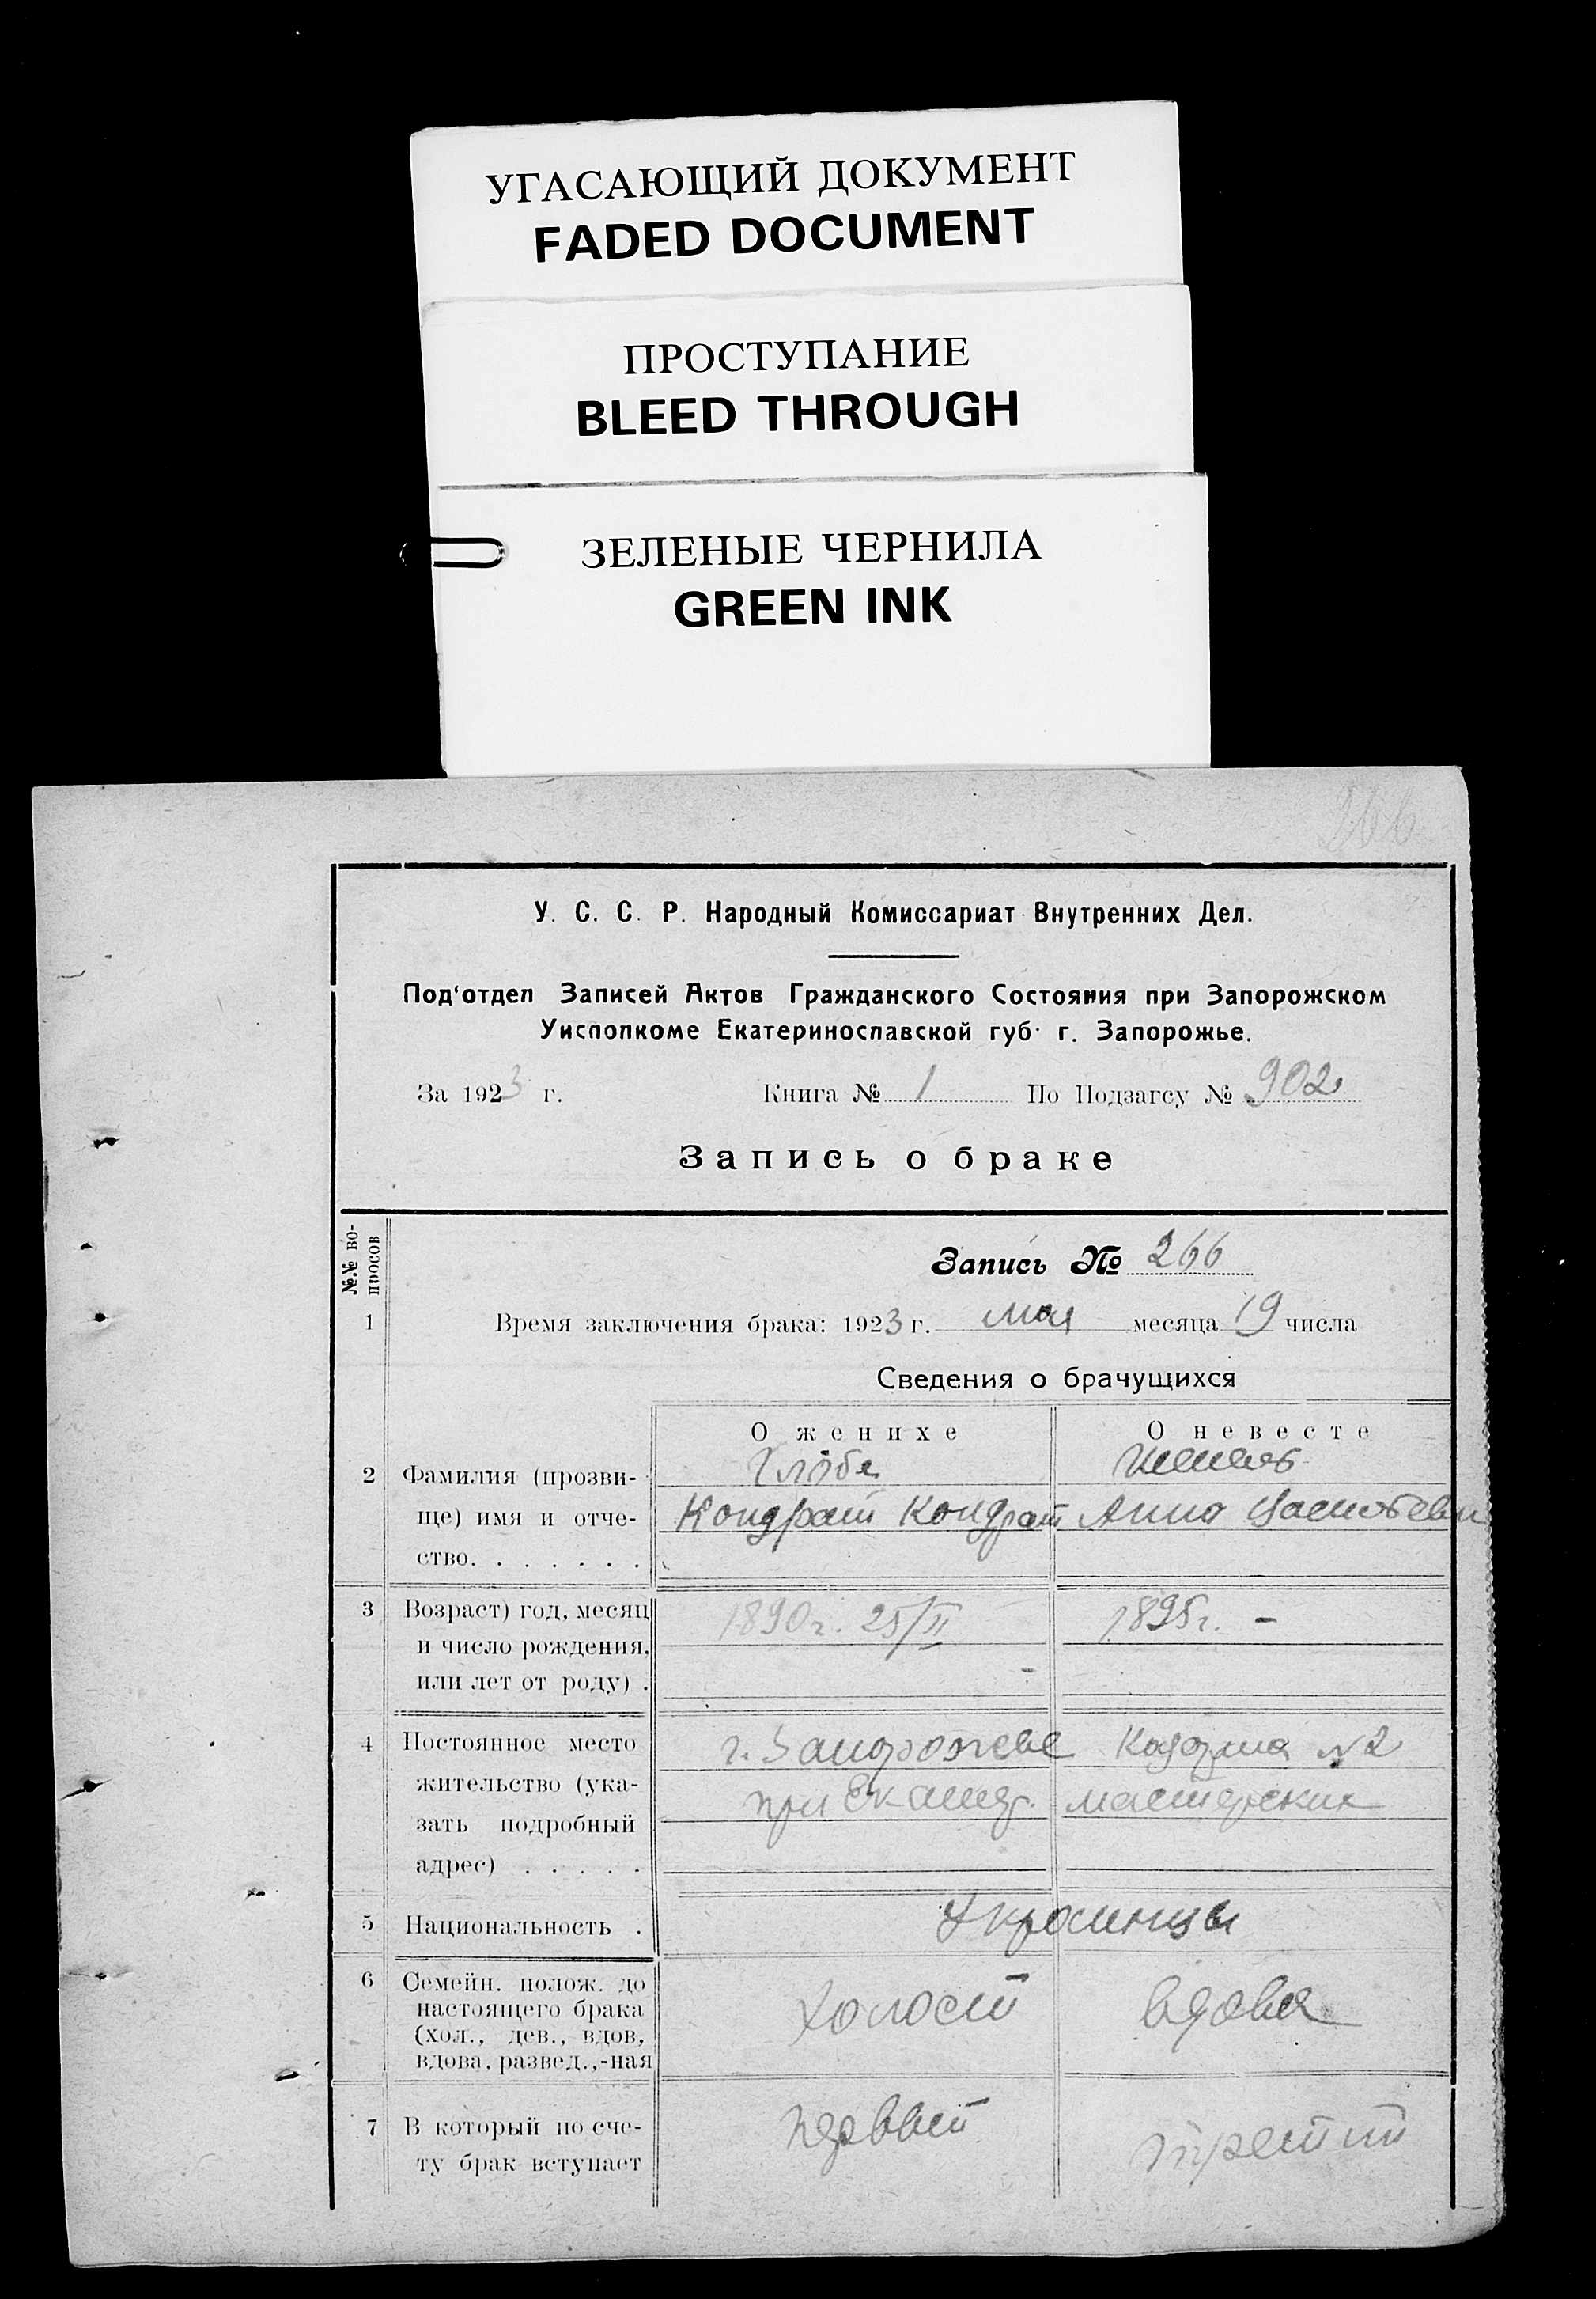 УГАСАЮЩИЙ ДОКУМЕНТ
FADED DOCUMENT
ПРОСТУПАНИЕ
BLEED THROUGH
ЗЕЛЕНЫЕ ЧЕРНИЛА
GREEN INK
266
У. С. С. Р. Народный Комиссариат Внутренних Дел.
Под'отдел Записей Актов Гражданского Состояния при Запорожском
Уисполкоме Екатеринославской губ. г. Запорожье.
За 1923 г. Книга № 1 По Подзагсу № 902
Запись о браке
№.№ во-
просов
Запись № 266
1 Время заключения брака: 1923 г. мая месяца 19 числа
Сведения о брачущихся
О женихе О невесте
2 Фамилия (прозви- Глоба
ще) имя и отче- Кондрат Кондрат Анна
ство. . . . . . .
3 Возраст) год, месяц 1890 г. 25/II 1895 г. –
и число рождения,
или лет от роду) .
4 Постоянное место г. Запорожье Казарма №2
жительство (ука- при Екатер. мастерских
зать подробный
адрес) . . . . .
5 Национальность . Украинцы
6 Семейн. полож. до
настоящего брака холост вдова
(хол., дев., вдов,
вдова, развед.,-ная
7 В который по сче- первый третий
ту брак вступает